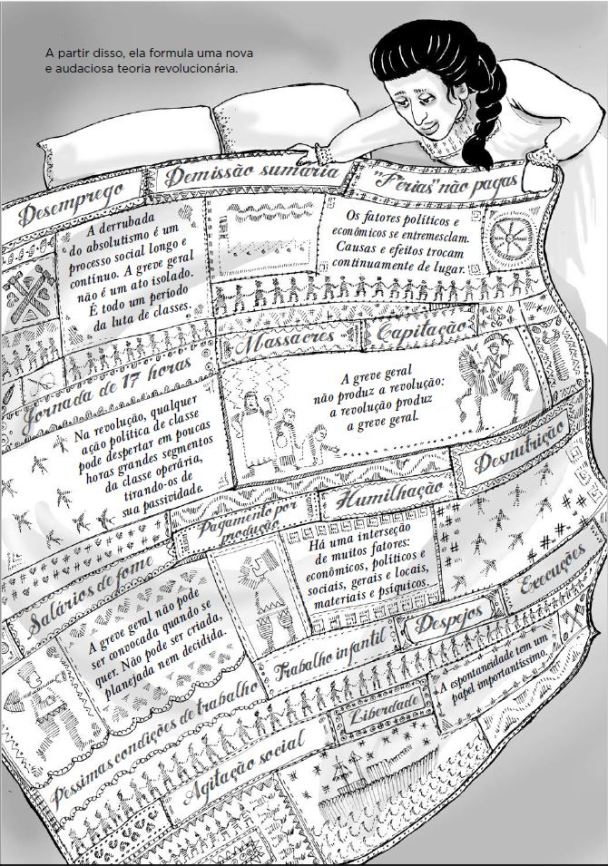 A partir disso, ela formula uma nova
e audaciosa teoria revolucionária.
Desemprego
Demissão sumária
"Férias" não pagas
A derrubada
do absolutismo é um
processo social longo e
contínuo. A greve geral
não é um ato isolado.
É todo um período
da luta de classes.
Os fatores políticos e
econômicos se entremesclam.
Causas e efeitos trocam
continuamente de lugar.
Massacres
Capitação
Jornada de 17 horas
A greve geral
não produz a revolução:
a revolução produz
a greve geral.
Na revolução, qualquer
ação política de classe
pode despertar em poucas
horas grandes segmentos
da classe operária,
tirando-os de
sua passividade.
Desnutrição
Humilhação
Pagamento por
produção
Há uma interseção
de muitos fatores:
econômicos, políticos e
sociais, gerais e locais,
materiais e psíquicos.
Salários de fome
Execuções
A greve geral não pode
ser convocada quando se
quer. Não pode ser criada,
planejada nem decidida.
Trabalho infantil
Despejos
A espontaneidade tem um
papel importantíssimo.
Péssimas condições de trabalho
Liberdade
Agitação social